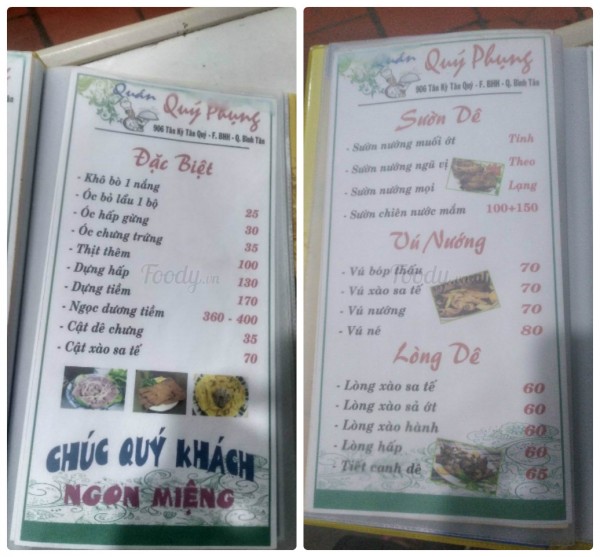 Quán Quý Phụng
906 Tân Kỳ Tân Quý - F. BHH - Q. Bình Tân
Đặc Biệt
- Khô bò 1 nắng
- Óc bỏ lẩu 1 bộ 25
- Óc hấp gừng 30
- Óc chưng trứng 35
- Thịt thêm 100
- Dựng hấp 130
- Dựng tiềm 170
- Ngọc dương tiềm 360 - 400
- Cật dê chưng 35
- Cật xào sa tế 70
Foody.vn
CHÚC QUÝ KHÁCH
NGON MIỆNG
Quán Quý Phụng
906 Tân Kỳ Tân Quý - F. BHH - Q. Bình Tân
Sườn Dê
- Sườn nướng muối ớt Tính
- Sườn nướng ngũ vị Theo
- Sườn nướng mọi Lạng
- Sườn chiên nước mắm 100+150
Vú Nướng
- Vú bóp thấu 70
- Vú xào sa tế 70
- Vú nướng 70
- Vú né 80
Foody.vn
Lòng Dê
- Lòng xào sa tế 60
- Lòng xào sả ớt 60
- Lòng xào hành 60
- Lòng hấp 60
- Tiết canh dê 65